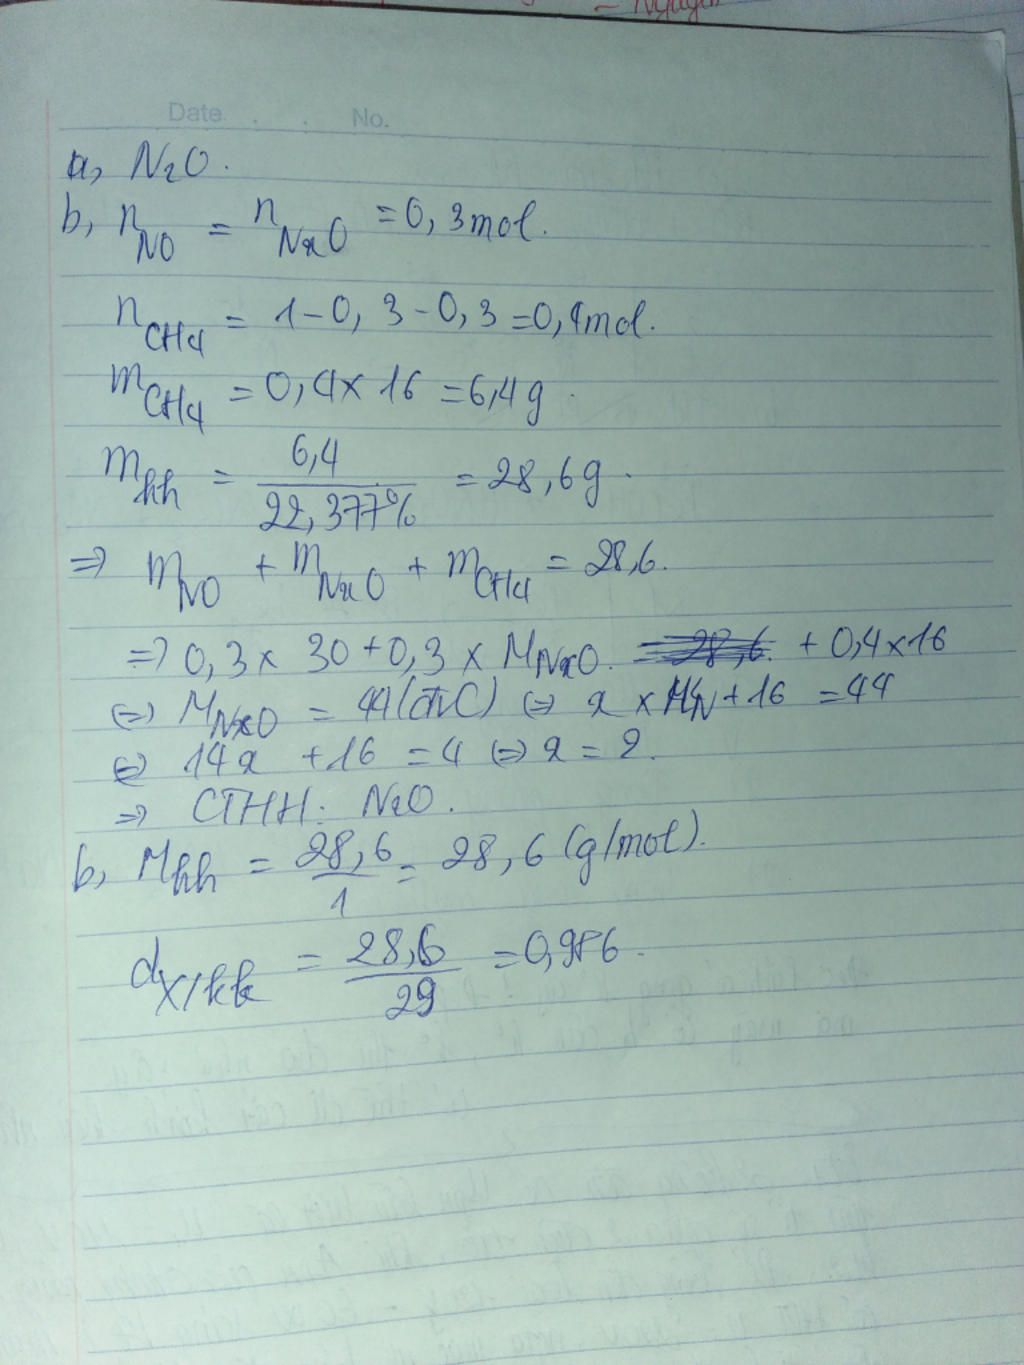 – Nguyên
Date. . . No.
a, N2O.
b, nNO = nNxO = 0,3mol.
nCH4 = 1 – 0,3 – 0,3 = 0,4mol.
mCH4 = 0,4 x 16 = 6,4g.
mhh = 6,4 / 22,377% = 28,6g.
=> mNO + mNxO + mCH4 = 28,6.
=> 0,3 x 30 + 0,3 x MNxO. = 28,6. + 0,4 x 16
(=) MNxO = 44(đvC) (=> x x MN + 16 = 44
(=> 14x + 16 = 4 (=> x = 2.
=> CTHH: N2O.
b, Mhh = 28,6 / 1 = 28,6 (g/mol).
dX/kk = 28,6 / 29 = 0,986.